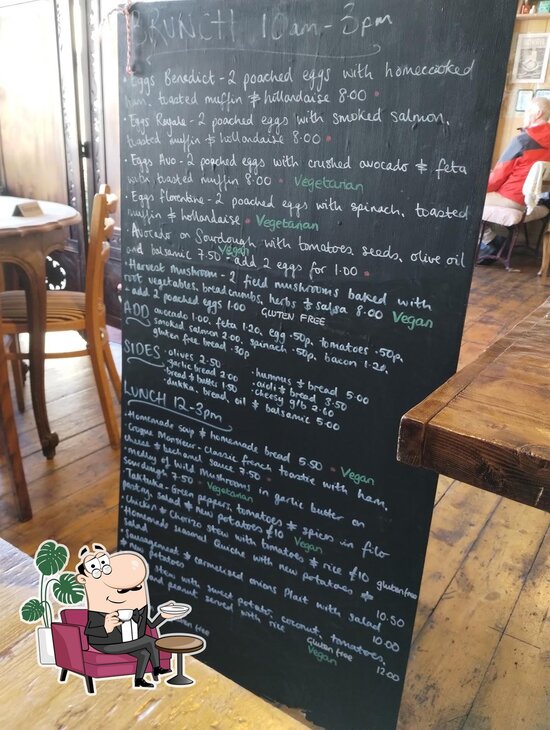 BRUNCH 10am-3pm
• Eggs Benedict - 2 poached eggs with homecooked
ham, toasted muffin & hollandaise 8.00
• Eggs Royale - 2 poached eggs with smoked salmon,
toasted muffin & hollandaise 8.00
• Eggs Avo - 2 poached eggs with crushed avocado & feta
with toasted muffin 8.00 • Vegetarian
• Eggs florentine - 2 poached eggs with spinach, toasted
muffin & hollandaise • Vegetarian
• Avocado on Sourdough with tomatoes seeds, olive oil
and balsamic 7.50 • Vegan - add 2 eggs for 1.00
• Harvest Mushroom - 2 field mushrooms baked with
root vegetables, breadcrumbs, herbs & salsa 8.00 Vegan
- add 2 poached eggs 1.00 GLUTEN FREE
ADD avocado 1.00, feta 1.20, egg .50p, tomatoes .50p,
smoked salmon 2.00, spinach .50p, bacon 1.20,
gluten free bread .30p
SIDES • olives 2.50 • hummus & bread 5.00
• garlic bread 2.00 • aioli & bread 3.50
• bread & butter 1.50 • cheesy g/b 2.60
• dukka, bread, oil & balsamic 5.00
LUNCH 12-3pm
• Homemade soup & homemade bread 5.50 • Vegan
• Croque Monsieur - Classic french toastie with ham,
cheese & bechamel sauce 7.50
• Medley of Wild Mushrooms in garlic butter on
Sourdough 7.50 • Vegetarian
• Taktuka - Green peppers, tomatoes & spices in filo
Pastry, Salad & new potatoes £10 Vegan
• Chicken & Chorizo stew with tomatoes & rice £10 glutenfree
• Homemade seasonal Quiche with new potatoes &
Salad 10.50
• Sausagemeat & carmelised onions Plait with salad
& new potatoes 10.00
stew with sweet potato, coconut, tomatoes,
and peanut served with rice 12.00
Gluten free
Vegan